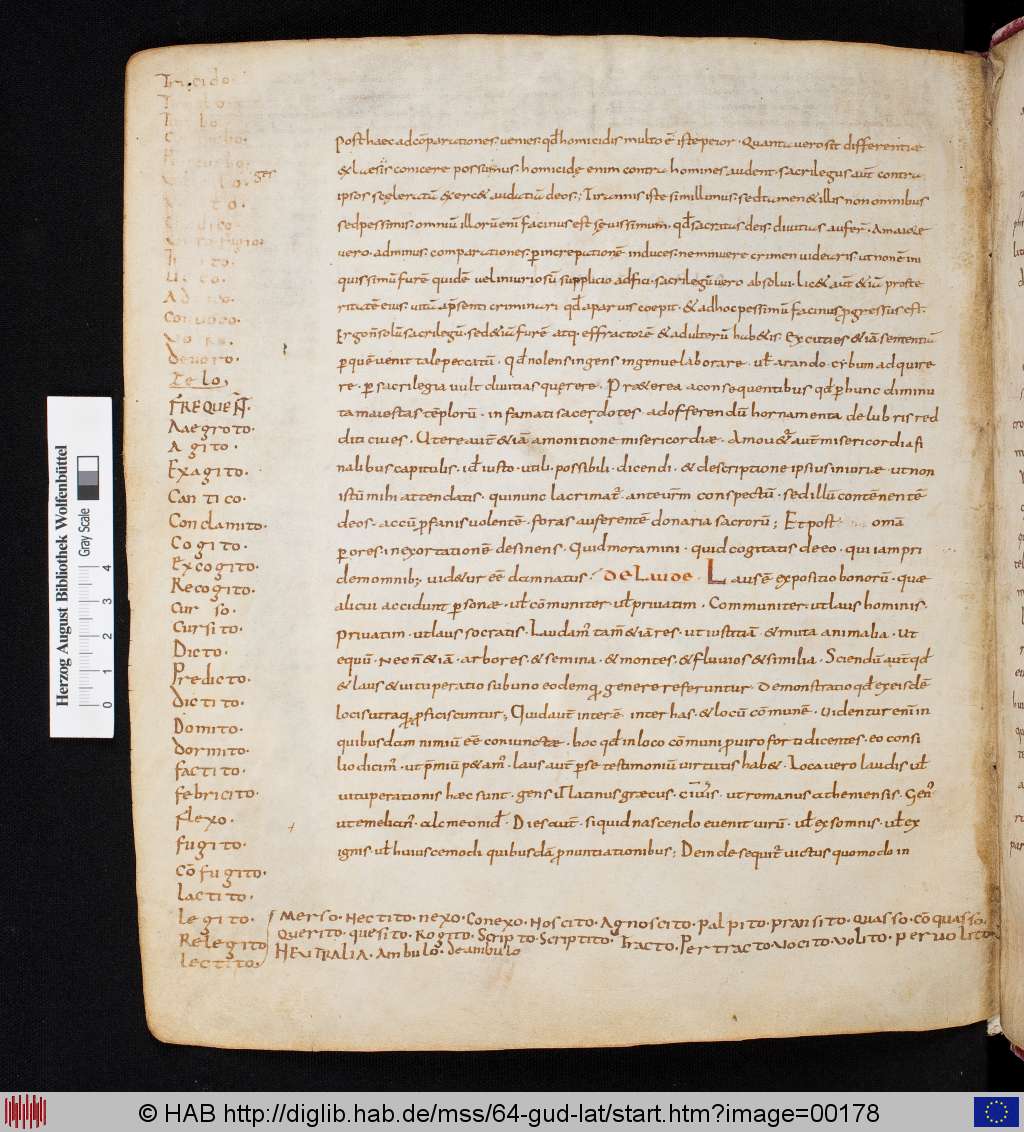 Incido.
Devoro.
Telo,
FREQUENT.
Aaegroto.
Agito.
Exagito.
Cantico.
Conclamito.
Cogito.
Excogito.
Recogito.
Cur so.
Cursito.
Dicto.
Predicto.
dictito.
Domito.
dormito.
factito.
febricito.
flexo.
fugito.
cōfugito.
lactito.
legito.
Relegito
lectito,
Post haec ad cōparationes venies qđ homicidis multo ē iste peior. Quanta vero sit differentiae
ex laesis conicere possumus. homicidę enim contra homines audent. sacrilegus aut̄ contra
ipsos sceleratā exercet audatiā deos; Tirannis iste simillimus. sed tamen & illis non omnibus
sed pessimis. omniū illorū enī facinus est sęvissimum. qđ sacratas deis divitias aufer̄.
vero adminus conparationes ꝑ increpationē induces.
quissimū furē quidē vel iniuriosū supplicio adfici. sacrilegū vero absolvi. lic& aut̄ & iā profte
ritatē eius. vitā apsenti criminari qđ a parvis coepit. & ad hoc pessimū facinus ꝓgressus est.
Ergo n̄ solū sacrilegū. sed & iā furē atq. effractorē & adulterū hab&is. Excuties & iā sententiā
ꝑ quē venit tale peccatū. Qđ nolens ingens ingenue laborare. ut̄ arando cybum adquire
re. ꝑ sacrilegia vult divitias quęrere. Praeterea a consequentibus qđ ꝑ hunc diminu
ta maiestas tēplorū. infamati sacerdotes. ad offerendū hornamenta delubris red
diti cives. Utere aut̄ & iā amonitione misericordiae. Amov& aut̄ misericordia fi
nalibus capitulis. id̄ iusto. utili. possibili. dicendi. & descriptione ipsius iniuriae ut non
istū mihi attendatis. qui nunc lacrimat̄. ante vr̄m conspectū. sed illū contēnentē
deos. accū ꝓfanis volentē. foras auferentē donaria sacrorū; Et post omā
ꝑores. in exortationē desinens. Quid moramini. quid cogitatis de eo. qui iam pri
dem omnib; vid&ur eē damnatus. De Laude. Laus ē expositio bonorū. quae
alicui accidunt ꝑsonae. ut̄ cōmuniter ut̄ privatim. Communiter. ut laus hominis.
privatim. ut laus socratis. Laudam̄ tam̄ & iā res. ut iustitiā. & muta animalia. Ut
equū. Necn̄ & iā. arbores. & semina. & montes. & fluvios & similia. Sciendū aut̄ qđ
& laus & vituperatio sub uno eodemq; genere referuntur. Demonstratio qđ ex eisdē
locis utraq; ꝓficiscuntur; Quid aut̄ interē inter has. & locū cōmunē. Videntur enī in
quibusdam nimiū eē coniunctae. hoc qđ in loco cōmuni pro viro forti dicentes. eo consi
lio dicim̄. ut p̄miū p&am̄. laus aut̄ ꝑ se testimoniū virtutis hab&. Loca vero laudis ut̄
vituperationis haec sunt. gens ut̄ latinus graecus. civis̄. ut romanus atheniensis. Gen̄
ut emelian̄. alcmeonid̄. Dies aut̄. si quid nascendo evenit virū. ut̄ ex somnis. ut̄ ex
ignis ut̄ huiuscemodi quibusdā ꝓnuntiationibus; Deinde sequit̄ victus quomodo in
Merso. Nectito. nexo. Conexo. Noscito. Agnoscito. Palpito. pransito. quasso. cō quasso.
Querito. quesito. Rogito. Scripto. Scriptito. Tracto. Pertracto. Vocito. Volito. pervolito
NEUTRALIA. Ambulo. deambulo
Herzog August Bibliothek Wolfenbüttel
Gray Scale
0 1 2 3 4
© HAB http://diglib.hab.de/mss/64-gud-lat/start.htm?image=00178